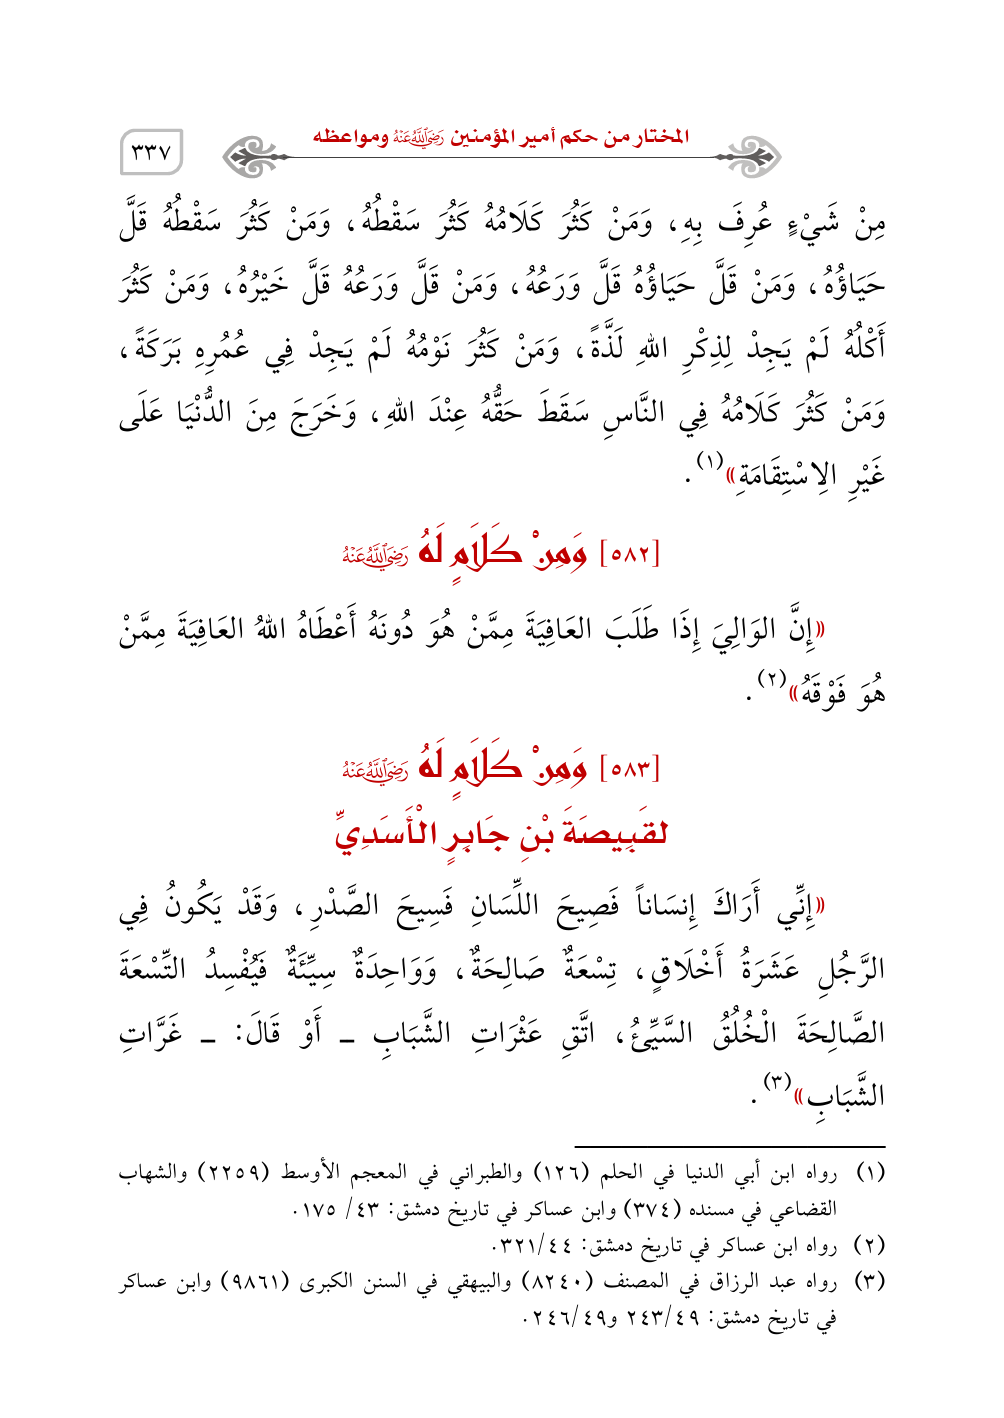 المختار من حكم أمير المؤمنين رَضِيَ اللَّهُ عَنْهُ ومواعظه
٣٣٧
مِنْ شَيْءٍ عُرِفَ بِهِ، وَمَنْ كَثُرَ كَلَامُهُ كَثُرَ سَقْطُهُ، وَمَنْ كَثُرَ سَقْطُهُ قَلَّ
حَيَاؤُهُ، وَمَنْ قَلَّ حَيَاؤُهُ قَلَّ وَرَعُهُ، وَمَنْ قَلَّ وَرَعُهُ قَلَّ خَيْرُهُ، وَمَنْ كَثُرَ
أَكْلُهُ لَمْ يَجِدْ لِذِكْرِ اللهِ لَذَّةً، وَمَنْ كَثُرَ نَوْمُهُ لَمْ يَجِدْ فِي عُمُرِهِ بَرَكَةً،
وَمَنْ كَثُرَ كَلَامُهُ فِي النَّاسِ سَقَطَ حَقُّهُ عِنْدَ اللهِ، وَخَرَجَ مِنَ الدُّنْيَا عَلَى
غَيْرِ الِاسْتِقَامَةِ»(١).
[٥٨٢] وَمِنْ كَلَامٍ لَهُ رَضِيَ اللَّهُ عَنْهُ
«إِنَّ الوَالِيَ إِذَا طَلَبَ العَافِيَةَ مِمَّنْ هُوَ دُونَهُ أَعْطَاهُ اللهُ العَافِيَةَ مِمَّنْ
هُوَ فَوْقَهُ»(٢).
[٥٨٣] وَمِنْ كَلَامٍ لَهُ رَضِيَ اللَّهُ عَنْهُ
لقَبِيصَةَ بْنِ جَابِرٍ الْأَسَدِيِّ
«إِنِّي أَرَاكَ إِنسَاناً فَصِيحَ اللِّسَانِ فَسِيحَ الصَّدْرِ، وَقَدْ يَكُونُ فِي
الرَّجُلِ عَشَرَةُ أَخْلَاقٍ، تِسْعَةٌ صَالِحَةٌ، وَوَاحِدَةٌ سِيِّئَةٌ فَيُفْسِدُ التِّسْعَةَ
الصَّالِحَةَ الْخُلُقُ السَّيِّئُ، اتَّقِ عَثْرَاتِ الشَّبَابِ ــ أَوْ قَالَ: ــ غَرَّاتِ
الشَّبَابِ»(٣).
(١) رواه ابن أبي الدنيا في الحلم (١٢٦) والطبراني في المعجم الأوسط (٢٢٥٩) والشهاب
القضاعي في مسنده (٣٧٤) وابن عساكر في تاريخ دمشق: ٤٣/ ١٧٥.
(٢) رواه ابن عساكر في تاريخ دمشق: ٣٢١/٤٤.
(٣) رواه عبد الرزاق في المصنف (٨٢٤٠) والبيهقي في السنن الكبرى (٩٨٦١) وابن عساكر
في تاريخ دمشق: ٢٤٣/٤٩ و٢٤٦/٤٩.